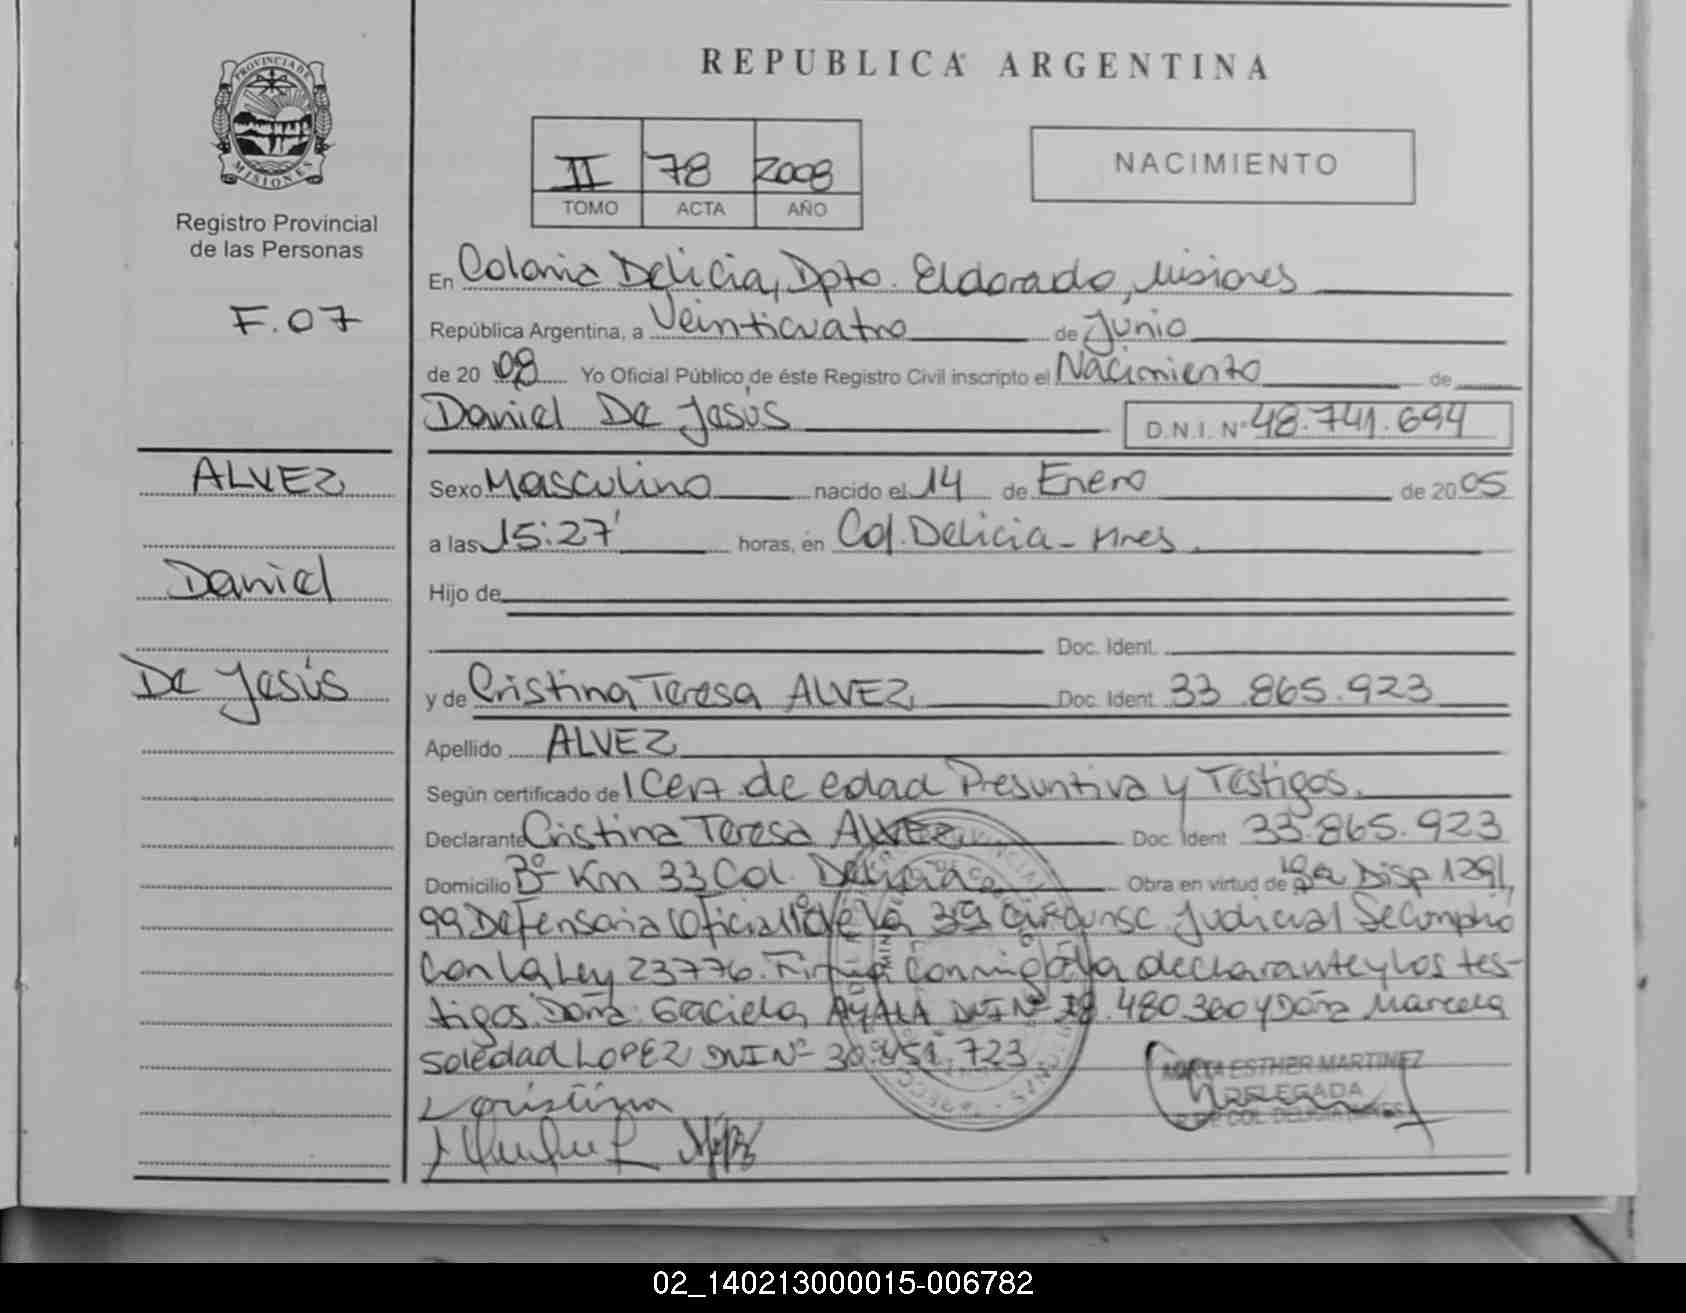 PROVINCIA DE
MISIONES
Registro Provincial
de las Personas
F.07
ALVEZ
Daniel
De Jesús
REPUBLICA ARGENTINA
II 78 2008
TOMO ACTA AÑO
NACIMIENTO
En Colonia Delicia, Dpto. Eldorado, Misiones
República Argentina, a Veinticuatro de Junio
de 20 08 Yo Oficial Público de éste Registro Civil inscripto el Nacimiento de
Daniel De Jesús D.N.I. Nº 48.741.694
Sexo Masculino nacido el 14 de Enero de 20 05
a las 15:27' horas, en Col. Delicia - Mnes
Hijo de
Doc. Ident.
y de Cristina Teresa ALVEZ Doc. Ident. 33.865.923
Apellido ALVEZ
Según certificado de 1 Cert de edad Presuntiva y Testigos.
Declarante Cristina Teresa ALVEZ Doc. Ident 33.865.923
Domicilio Bº Km 33 Col. Delicia Obra en virtud de la Disp 1291,
99 Defensoria Oficial de la 3ª Circunsc Judicial Se cumplió
con la Ley 23776. Firma conmigo la declarante y los tes-
tigos. Doña: Graciela AYALA DNI Nº .480.360 y Doña Marcela
Soledad LOPEZ DNI Nº 723
Cristina
ESTHER MARTINEZ
DELEGADA
02_140213000015-006782